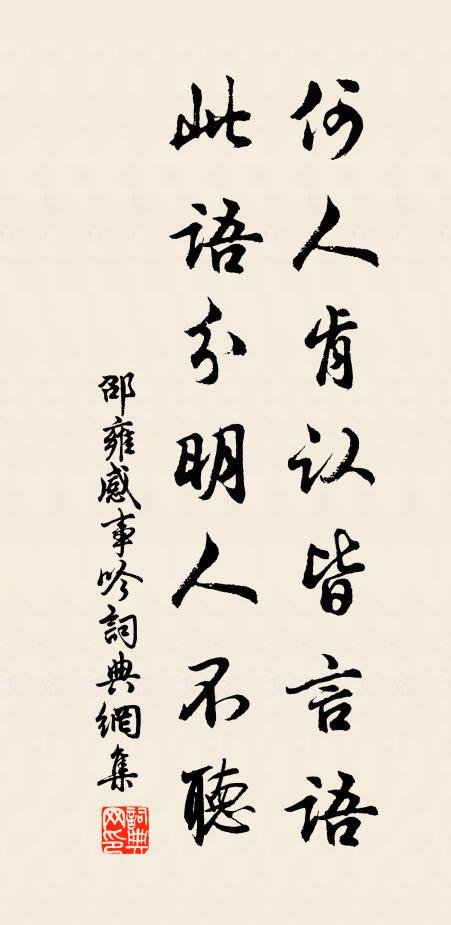 何人肯认皆言语
此语分明人不聽
邵雍感事吟詞典網集
詞典网印